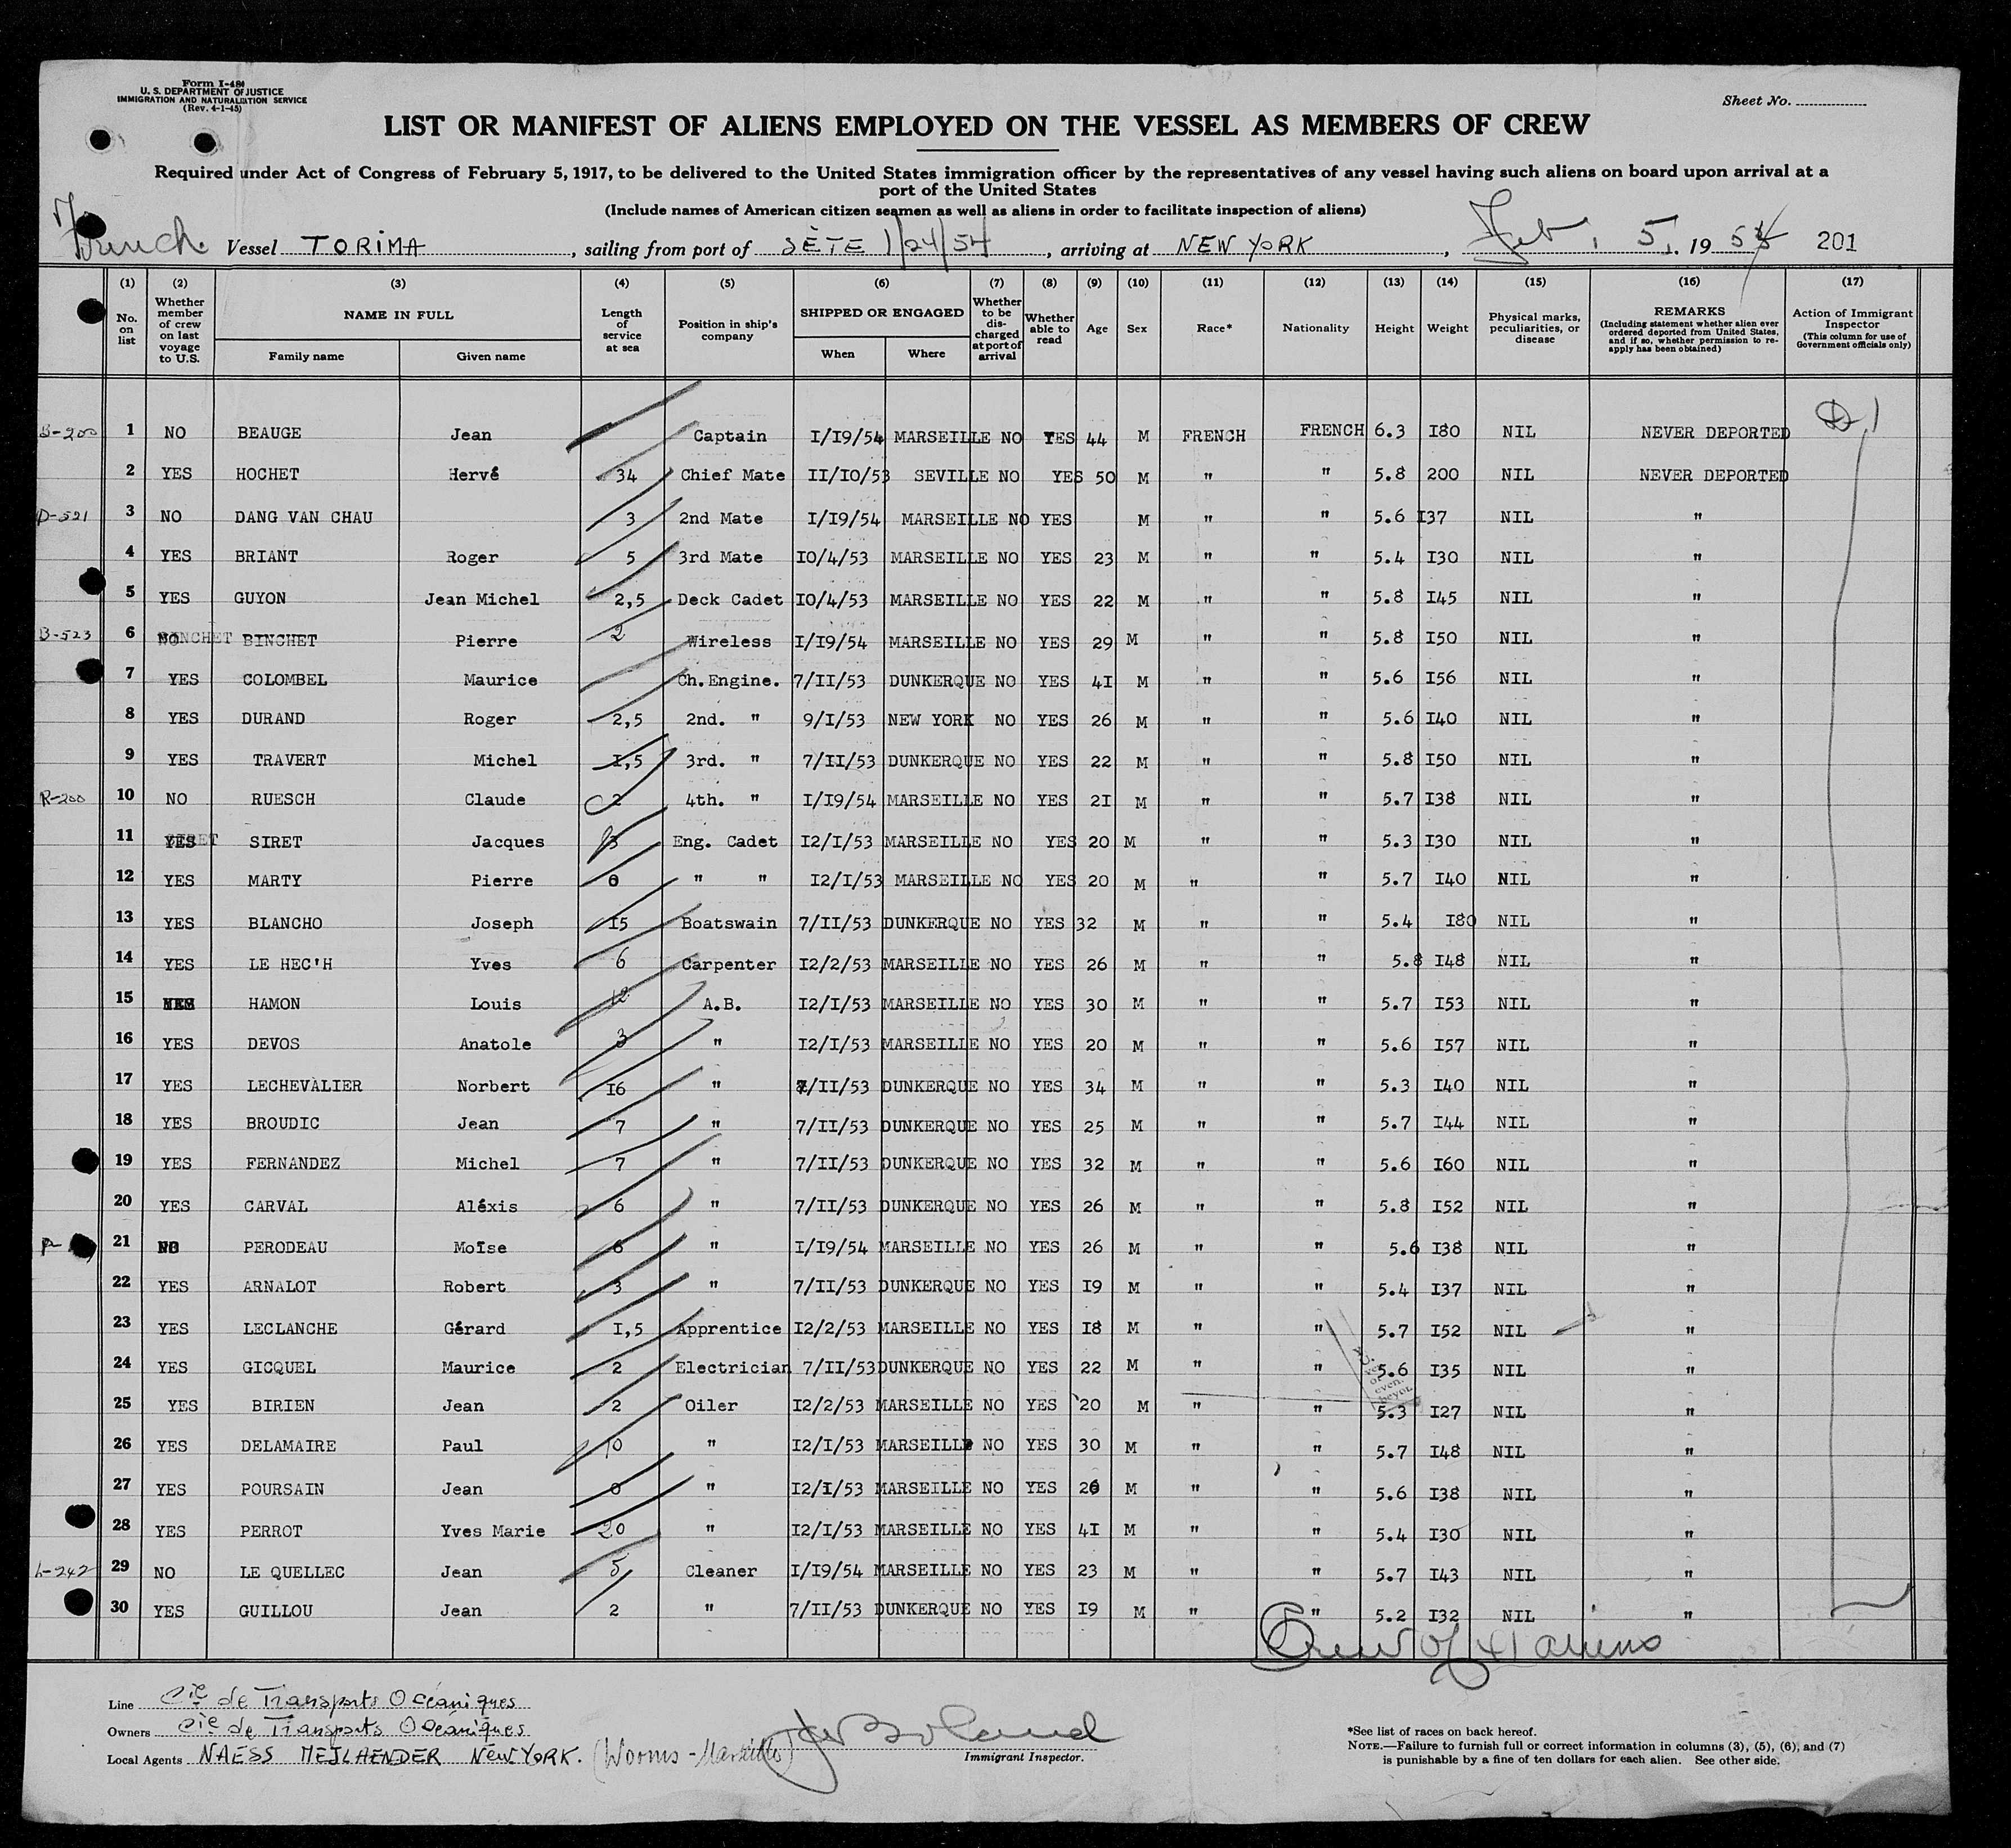 Form I-480
U. S. DEPARTMENT OF JUSTICE
IMMIGRATION AND NATURALIZATION SERVICE
(Rev. 4-1-45)
Sheet No.
LIST OR MANIFEST OF ALIENS EMPLOYED ON THE VESSEL AS MEMBERS OF CREW
Required under Act of Congress of February 5, 1917, to be delivered to the United States immigration officer by the representatives of any vessel having such aliens on board upon arrival at a
port of the United States
(Include names of American citizen seamen as well as aliens in order to facilitate inspection of aliens)
French Vessel TORIMA, sailing from port of SÈTE 1/24/54, arriving at NEW YORK, Feb. 5, 1954 201
(1) (2) (3) (4) (5) (6) (7) (8) (9) (10) (11) (12) (13) (14) (15) (16) (17)
No. on list Whether member of crew on last voyage to U.S. NAME IN FULL Family name Given name Length of service at sea Position in ship's company SHIPPED OR ENGAGED When Where Whether to be discharged at port of arrival Whether able to read Age Sex Race* Nationality Height Weight Physical marks, peculiarities, or disease REMARKS (Including statement whether alien ever ordered deported from United States, and if so, whether permission to reapply has been obtained) Action of Immigrant Inspector (This column for use of Government officials only)
B-200 1 NO BEAUGE Jean Captain I/I9/54 MARSEILLE NO YES 44 M FRENCH FRENCH 6.3 I80 NIL NEVER DEPORTED
2 YES HOCHET Hervé 34 Chief Mate II/IO/53 SEVILLE NO YES 50 M " " 5.8 200 NIL NEVER DEPORTED
D-521 3 NO DANG VAN CHAU 3 2nd Mate I/I9/54 MARSEILLE NO YES M " " 5.6 I37 NIL "
4 YES BRIANT Roger 5 3rd Mate IO/4/53 MARSEILLE NO YES 23 M " " 5.4 I30 NIL "
5 YES GUYON Jean Michel 2,5 Deck Cadet IO/4/53 MARSEILLE NO YES 22 M " " 5.8 I45 NIL "
B-523 6 NO BINCHET Pierre 2 Wireless I/I9/54 MARSEILLE NO YES 29 M " " 5.8 I50 NIL "
7 YES COLOMBEL Maurice Ch.Engine. 7/II/53 DUNKERQUE NO YES 4I M " " 5.6 I56 NIL "
8 YES DURAND Roger 2,5 2nd. " 9/I/53 NEW YORK NO YES 26 M " " 5.6 I40 NIL "
9 YES TRAVERT Michel I,5 3rd. " 7/II/53 DUNKERQUE NO YES 22 M " " 5.8 I50 NIL "
R-200 10 NO RUESCH Claude 2 4th. " I/I9/54 MARSEILLE NO YES 2I M " " 5.7 I38 NIL "
11 YES SIRET Jacques 3 Eng. Cadet I2/I/53 MARSEILLE NO YES 20 M " " 5.3 I30 NIL "
12 YES MARTY Pierre 0 " " I2/I/53 MARSEILLE NO YES 20 M " " 5.7 I40 NIL "
13 YES BLANCHO Joseph I5 Boatswain 7/II/53 DUNKERQUE NO YES 32 M " " 5.4 I80 NIL "
14 YES LE HEC'H Yves 6 Carpenter I2/2/53 MARSEILLE NO YES 26 M " " 5.8 I48 NIL "
15 YES HAMON Louis 12 A.B. I2/I/53 MARSEILLE NO YES 30 M " " 5.7 I53 NIL "
16 YES DEVOS Anatole 3 " I2/I/53 MARSEILLE NO YES 20 M " " 5.6 I57 NIL "
17 YES LECHEVALIER Norbert I6 " 7/II/53 DUNKERQUE NO YES 34 M " " 5.3 I40 NIL "
18 YES BROUDIC Jean 7 " 7/II/53 DUNKERQUE NO YES 25 M " " 5.7 I44 NIL "
19 YES FERNANDEZ Michel 7 " 7/II/53 DUNKERQUE NO YES 32 M " " 5.6 I60 NIL "
20 YES CARVAL Aléxis 6 " 7/II/53 DUNKERQUE NO YES 26 M " " 5.8 I52 NIL "
21 NO PERODEAU Moïse 6 " I/I9/54 MARSEILLE NO YES 26 M " " 5.6 I38 NIL "
22 YES ARNALOT Robert 3 " 7/II/53 DUNKERQUE NO YES I9 M " " 5.4 I37 NIL "
23 YES LECLANCHE Gérard I,5 Apprentice I2/2/53 MARSEILLE NO YES I8 M " " 5.7 I52 NIL "
24 YES GICQUEL Maurice 2 Electrician 7/II/53 DUNKERQUE NO YES 22 M " " 5.6 I35 NIL "
25 YES BIRIEN Jean 2 Oiler I2/2/53 MARSEILLE NO YES 20 M " " 5.3 I27 NIL "
26 YES DELAMAIRE Paul 10 " I2/I/53 MARSEILLE NO YES 30 M " " 5.7 I48 NIL "
27 YES POURSAIN Jean 0 " I2/I/53 MARSEILLE NO YES 26 M " " 5.6 I38 NIL "
28 YES PERROT Yves Marie 20 " I2/I/53 MARSEILLE NO YES 4I M " " 5.4 I30 NIL "
L-242 29 NO LE QUELLEC Jean 5 Cleaner I/I9/54 MARSEILLE NO YES 23 M " " 5.7 I43 NIL "
30 YES GUILLOU Jean 2 " 7/II/53 DUNKERQUE NO YES I9 M " " 5.2 I32 NIL "
Crew of 41 aliens
Line Cie de Transports Océaniques
Owners Cie de Transports Océaniques
Local Agents NAESS MEJLAENDER NEW YORK. (Worms - Marseille)
Immigrant Inspector.
*See list of races on back hereof.
NOTE.—Failure to furnish full or correct information in columns (3), (5), (6), and (7)
is punishable by a fine of ten dollars for each alien. See other side.